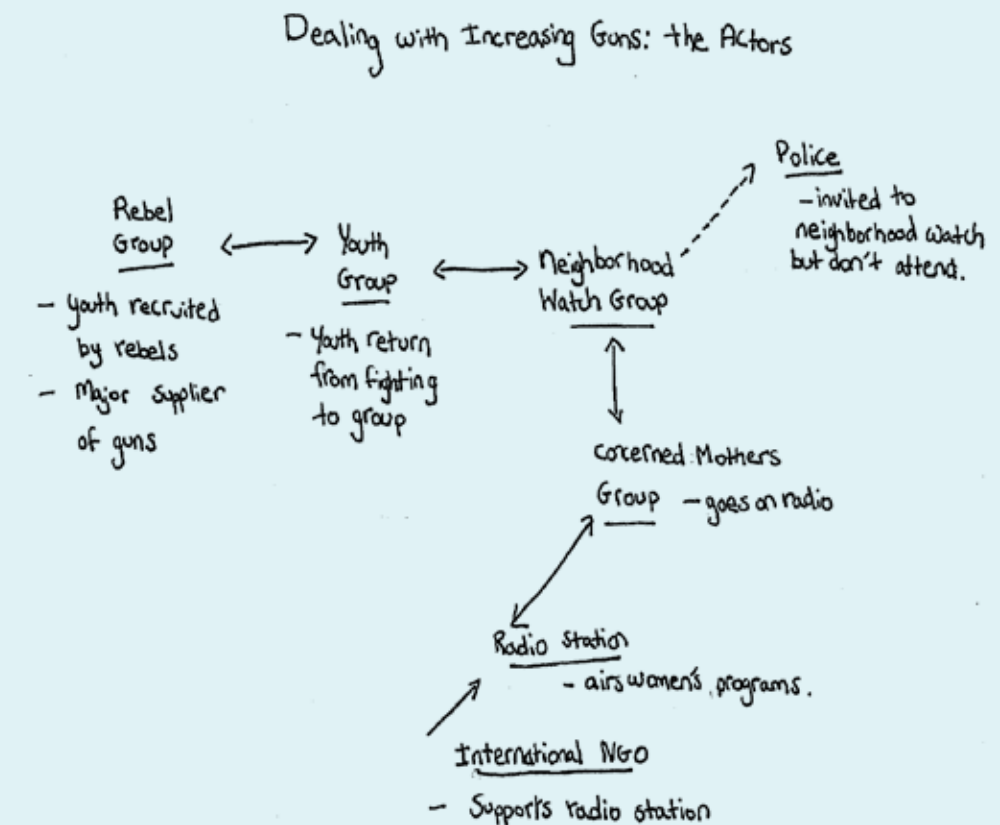 Dealing with Increasing Guns: the Actors
Rebel
Group
- Youth recruited
by rebels
- Major supplier
of guns
Youth
Group
- Youth return
from fighting
to group
Neighborhood
Watch Group
Police
- invited to
neighborhood watch
but don't attend.
Cocerned Mothers
Group - goes on radio
Radio Station
- airs women's programs.
International NGO
- Supports radio station